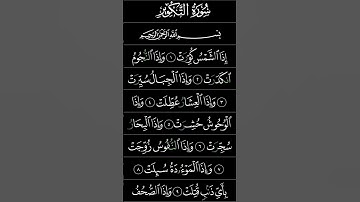 سُورَةُ التَّكْوِير
بِسْمِ اللَّهِ الرَّحْمَٰنِ الرَّحِيمِ
إِذَا الشَّمْسُ كُوِّرَتْ ١ وَإِذَا النُّجُومُ
انكَدَرَتْ ٢ وَإِذَا الْجِبَالُ سُيِّرَتْ
٣ وَإِذَا الْعِشَارُ عُطِّلَتْ ٤ وَإِذَا
الْوُحُوشُ حُشِرَتْ ٥ وَإِذَا الْبِحَارُ
سُجِّرَتْ ٦ وَإِذَا النُّفُوسُ زُوِّجَتْ
٧ وَإِذَا الْمَوْءُۥدَةُ سُئِلَتْ ٨
بِأَيِّ ذَنۢبٍ قُتِلَتْ ٩ وَإِذَا الصُّحُفُ